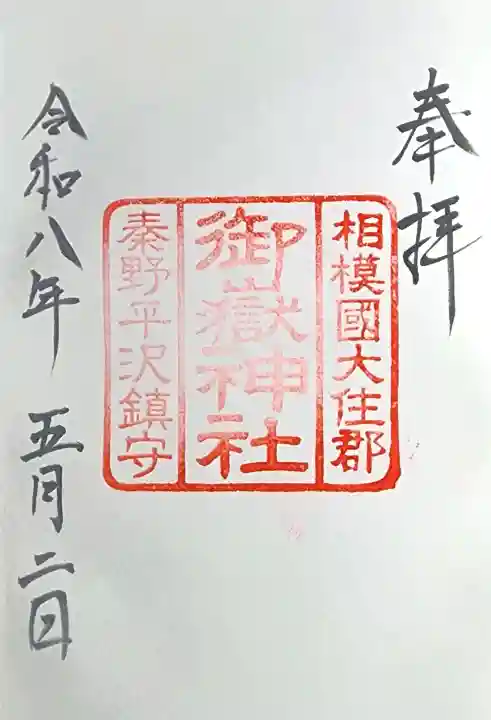 奉拝
相模國大住郡
御嶽神社
秦野平沢鎮守
令和八年 五月二日